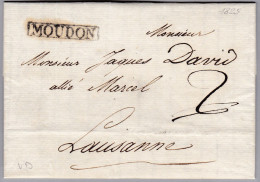 MOUDON
Monsieur
Monsieur Jaques David
allié Marcel
2
Lausanne